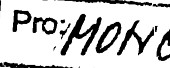 Pro: MONC